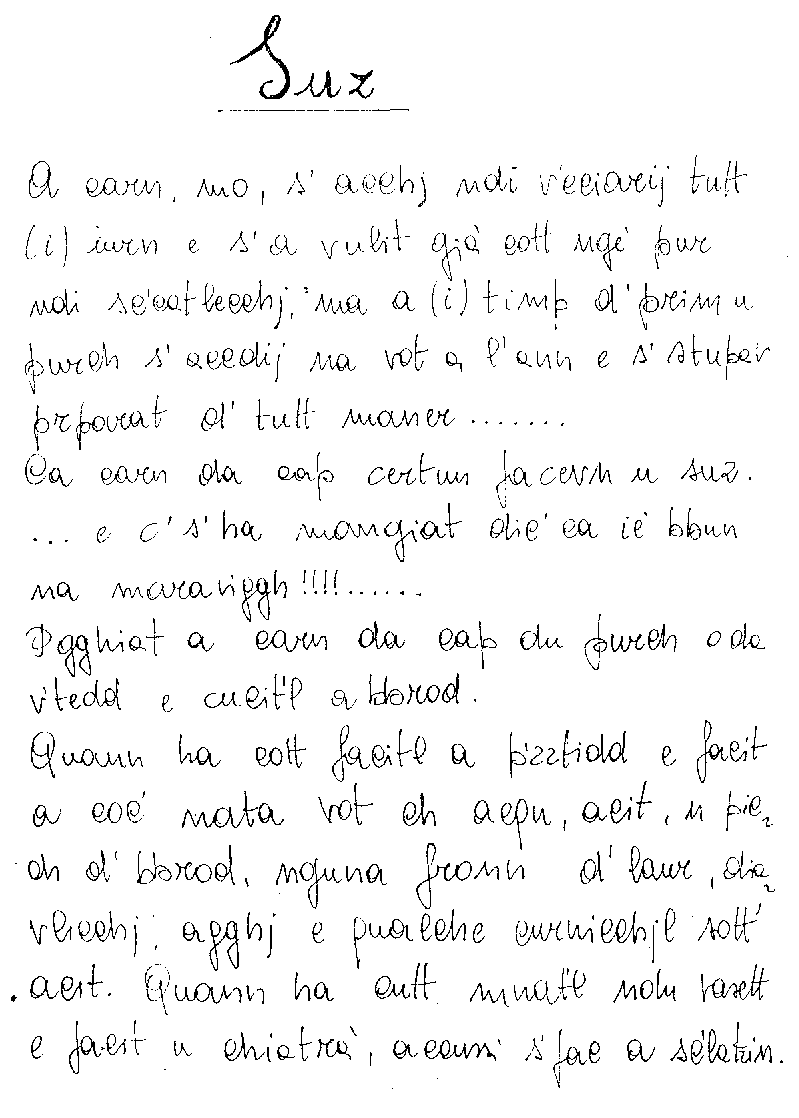 Suz
A carn, mo, s' acchj ndi v'cciarij tutt
(i) iurn e s' a vulit già cott ngè pur
ndi sc'catlecchj, ma a (i) timp d' prim u
purch s' accdij na vot a l'ann e s' stupav
prparat d' tutt maner .......
Ca carn da cap certun facevn u suz.
... e c' s' ha mangiat dic' ca iè bbun
na maraviggh !!!!......
Pgghiat a carn da cap du purch o da
v'tedd e cucit'l a bbrod.
Quann ha cott facitl a p'zztidd e facit
a coc' nata vot ch acqu, acit, u pic-
ch d' bbrod, nguna fronn d' laur, dia-
vlicchj, agghj e qualche curnicchjl sott'
acit. Quann ha cutt mnat'l ndu vasett
e facit u chiatrà, accussì s' fac a sc'latin.